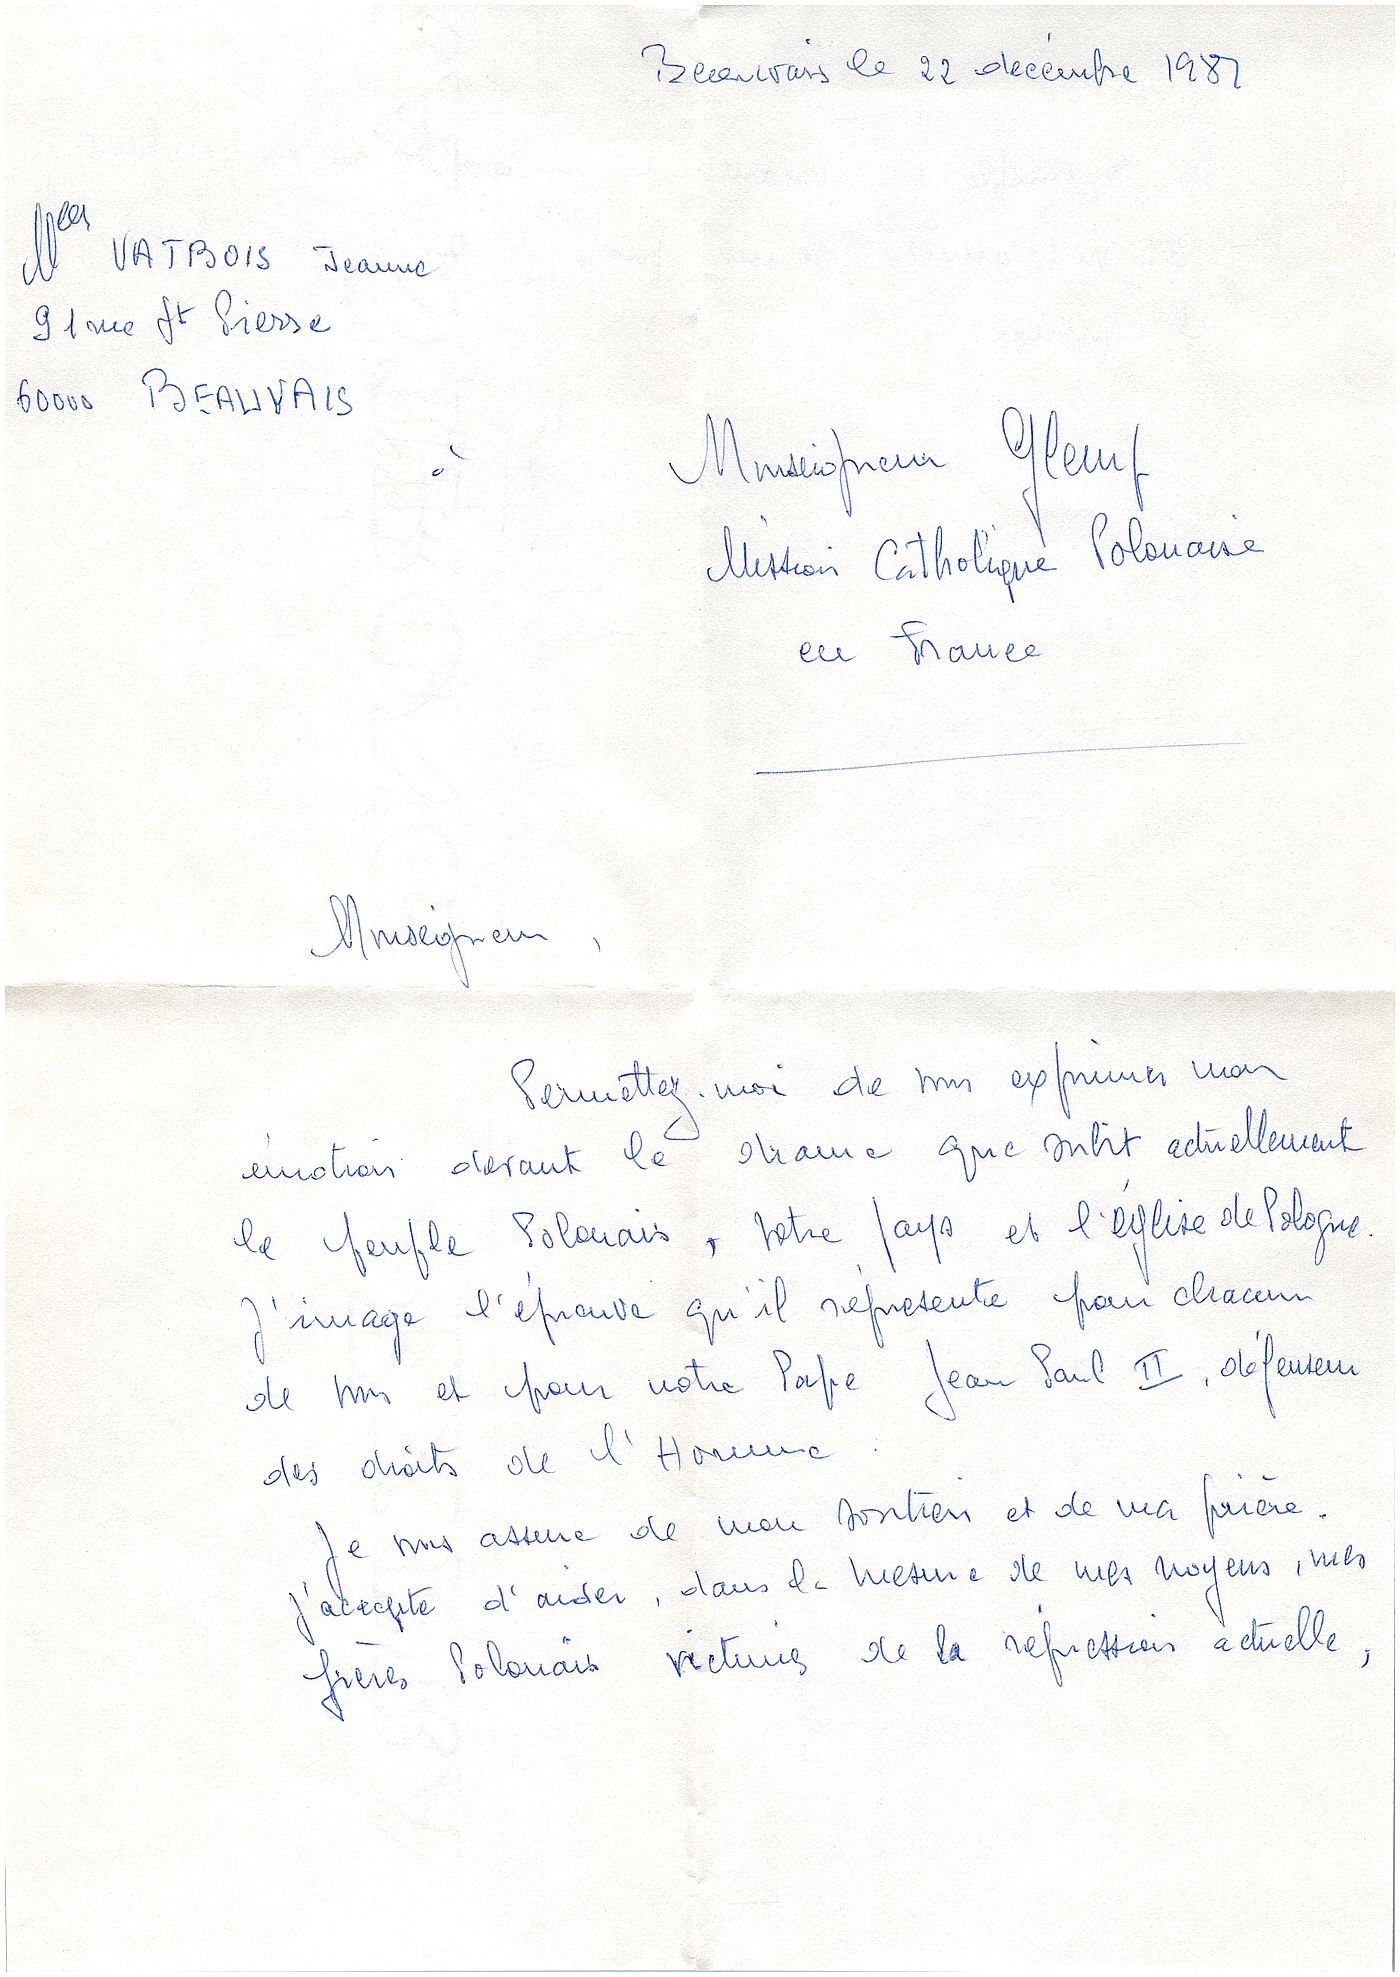 Beauvais le 22 décembre 1981
Melle VATBOIS Jeanne
91 rue St Pierre
60000 BEAUVAIS
à
Monseigneur Glemp
Mission Catholique Polonaise
en France
Monseigneur,
Permettez-moi de vous exprimer mon
émotion devant le drame que subit actuellement
le peuple Polonais, votre pays et l'église de Pologne.
J'image l'épreuve qu'il représente pour chacun
de vous et pour notre Pape Jean Paul II, défenseur
des droits de l'Homme.
Je vous assure de mon soutien et de ma prière.
J'accepte d'aider, dans la mesure de mes moyens, mes
frères Polonais victimes de la répression actuelle,